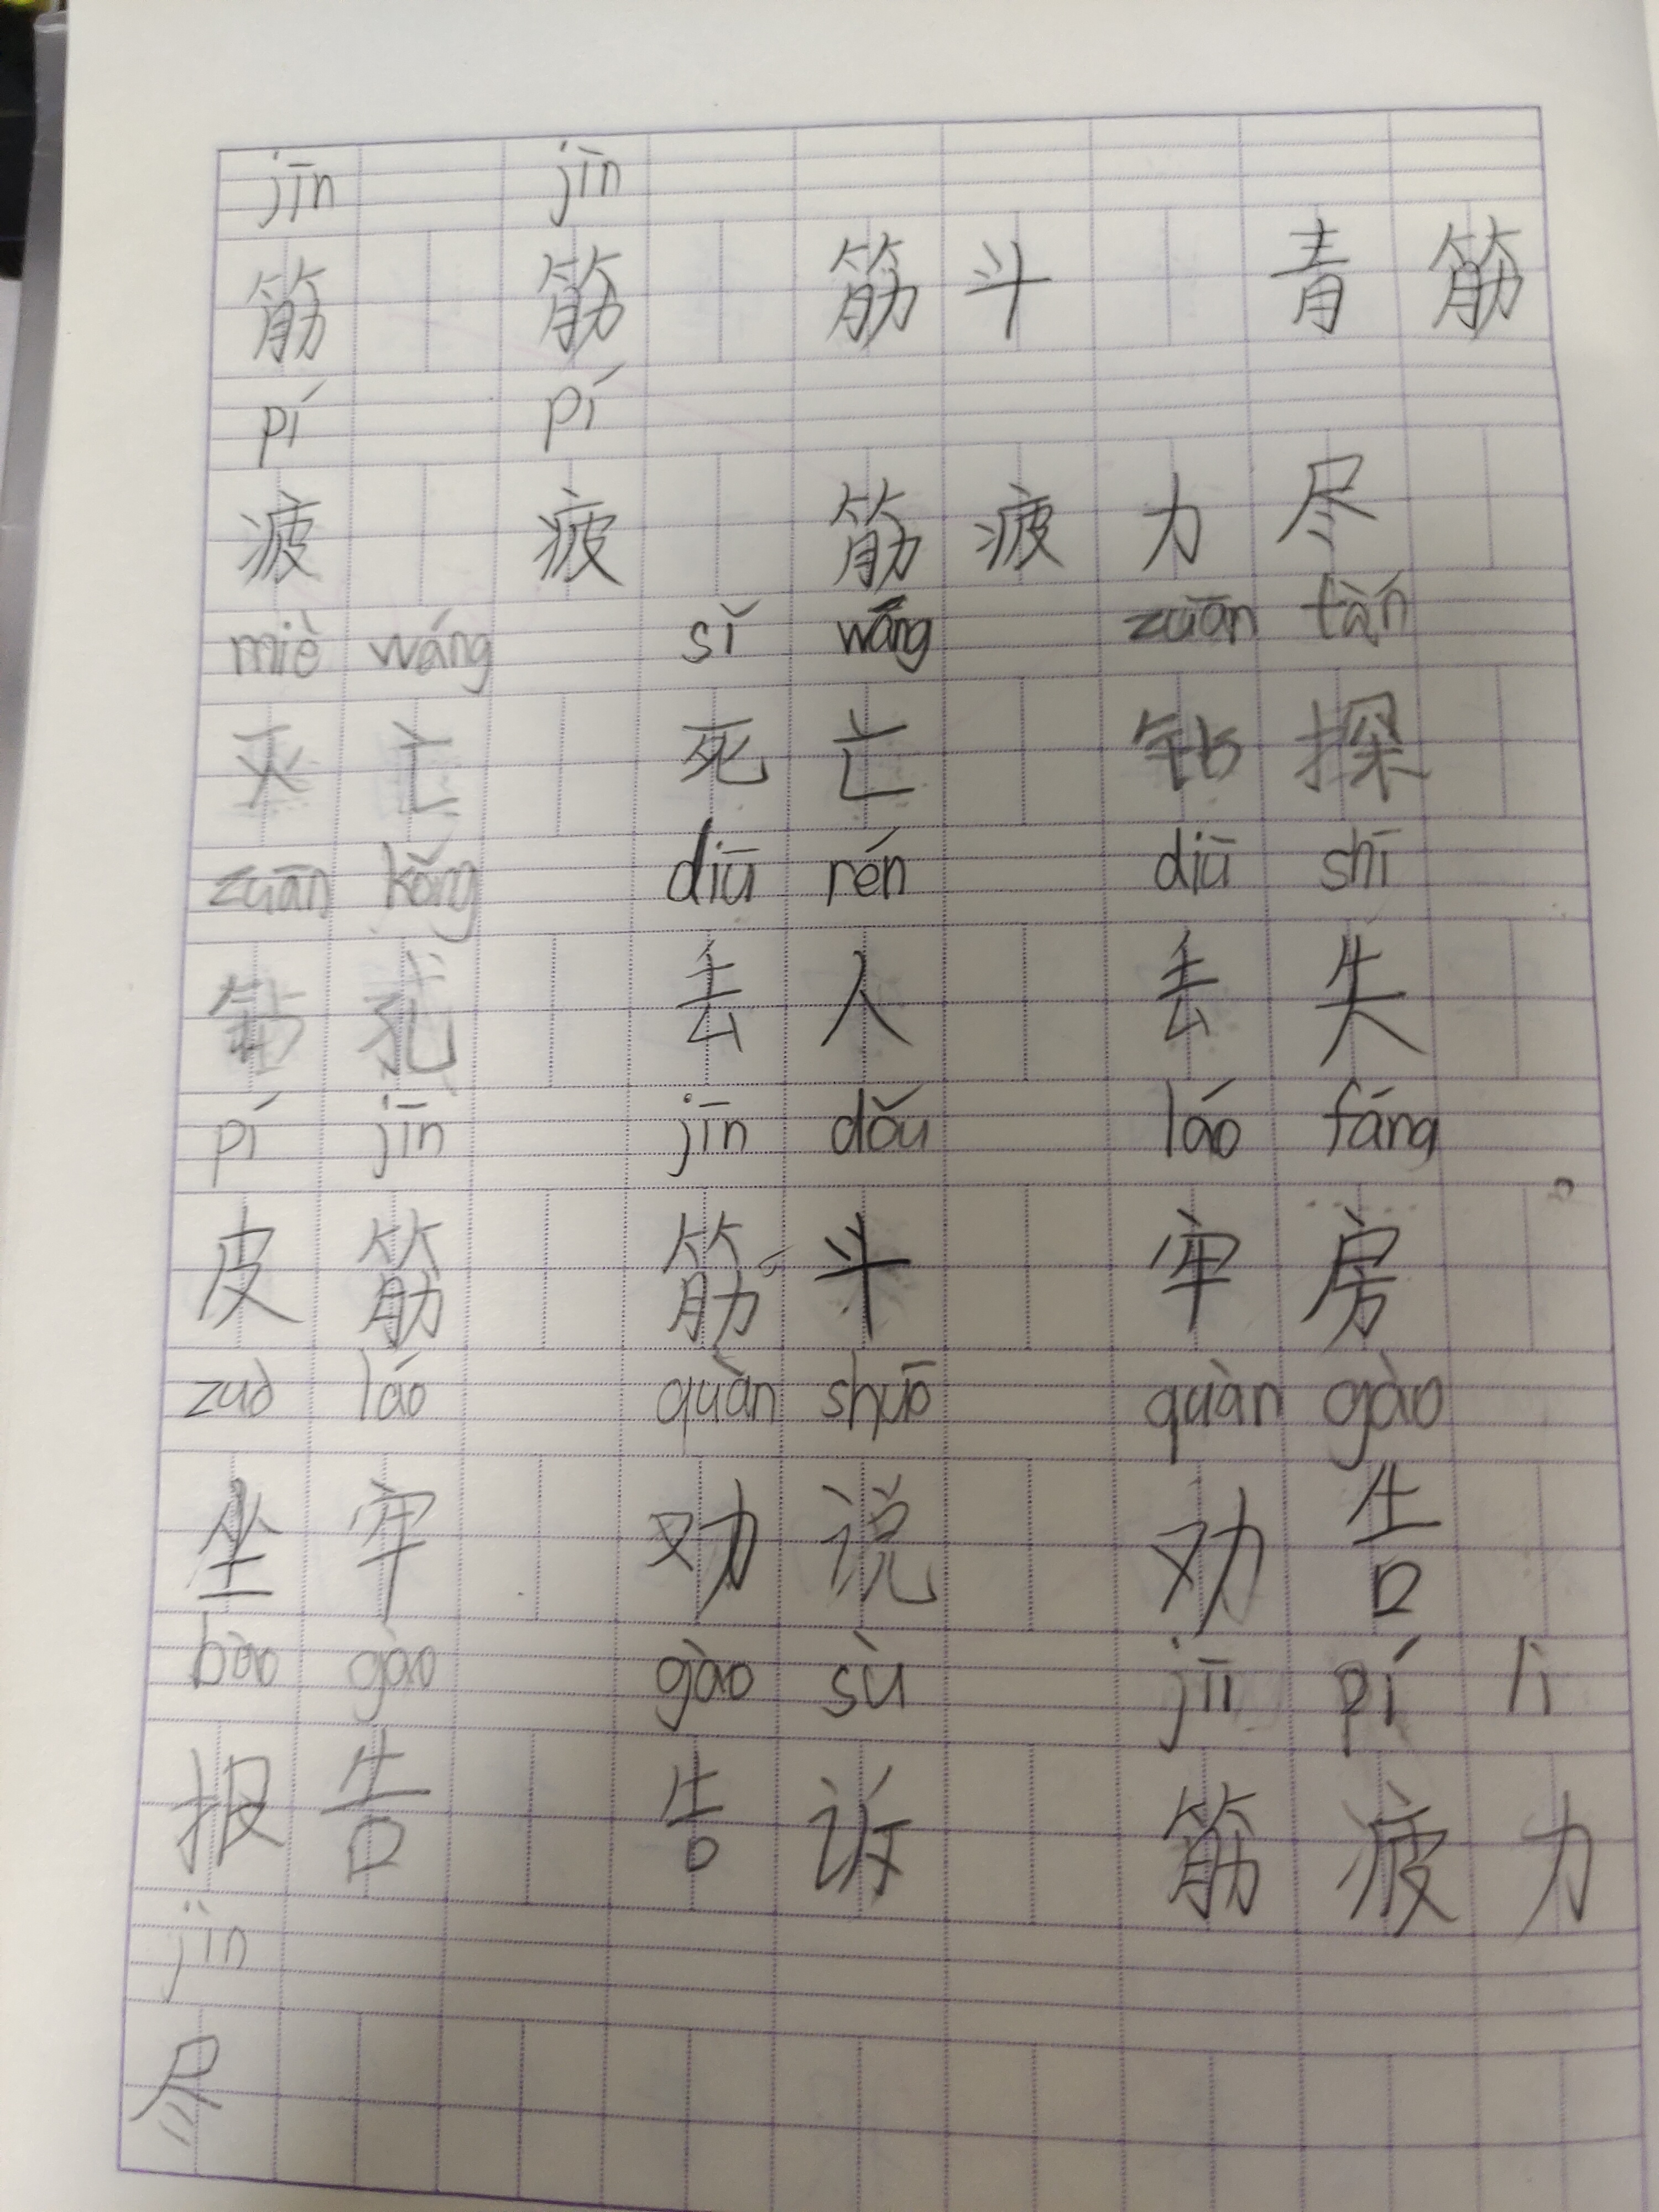 jīn jīn
筋 筋 筋斗 青筋
pí pí
疲 疲 筋疲力尽
miè wáng sǐ wáng zuān tàn
灭亡 死亡 钻探
zuān kǒng diū rén diū shī
钻孔 丢人 丢失
pí jīn jīn dǒu láo fáng
皮筋 筋斗 牢房
zuò láo quàn shuō quàn gào
坐牢 劝说 劝告
bào gào gào sù jīn pí lì
报告 告诉 筋疲力
jìn
尽